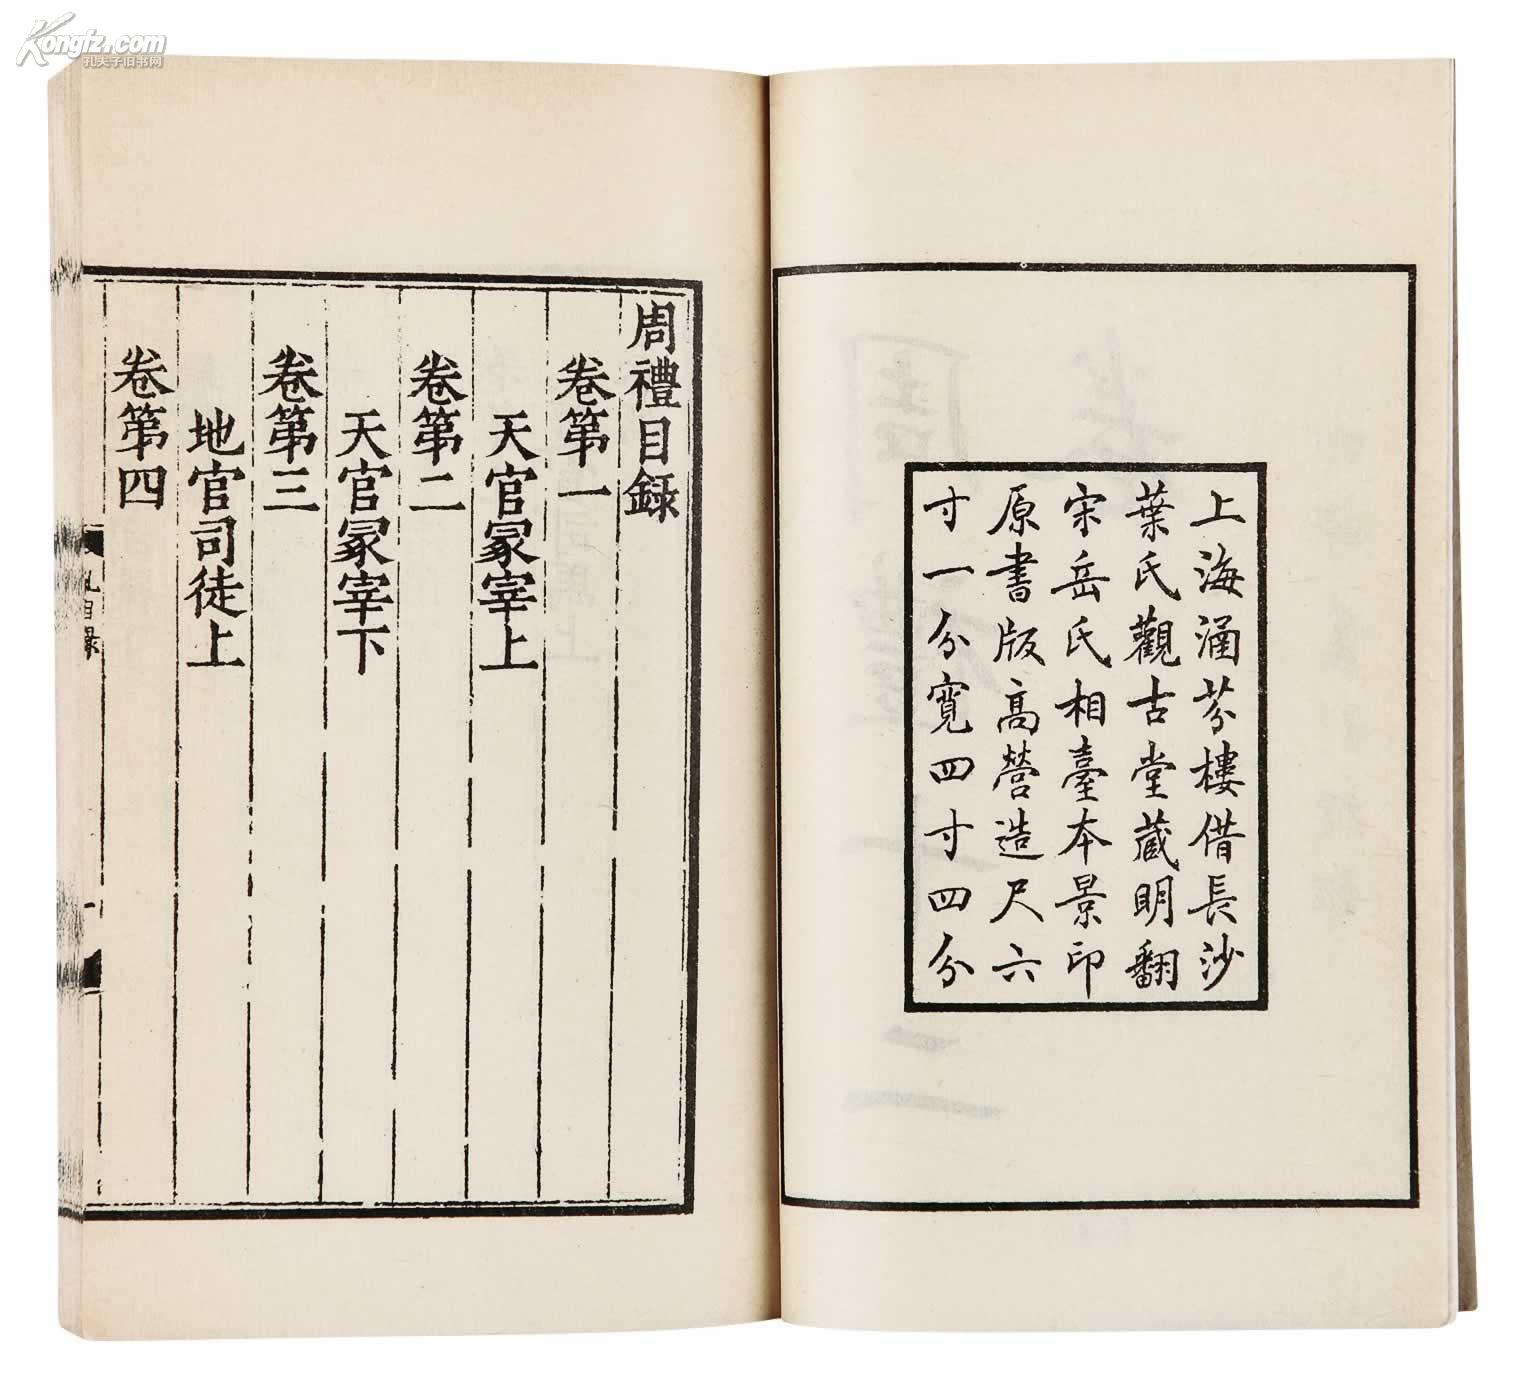 Kongfz.com
孔夫子旧书网
上海涵芬樓借長沙
葉氏觀古堂藏明翻
宋岳氏相臺本景印
原書版高營造尺六
寸一分寬四寸四分
周禮目錄
卷第一
天官冢宰上
卷第二
天官冢宰下
卷第三
地官司徒上
卷第四